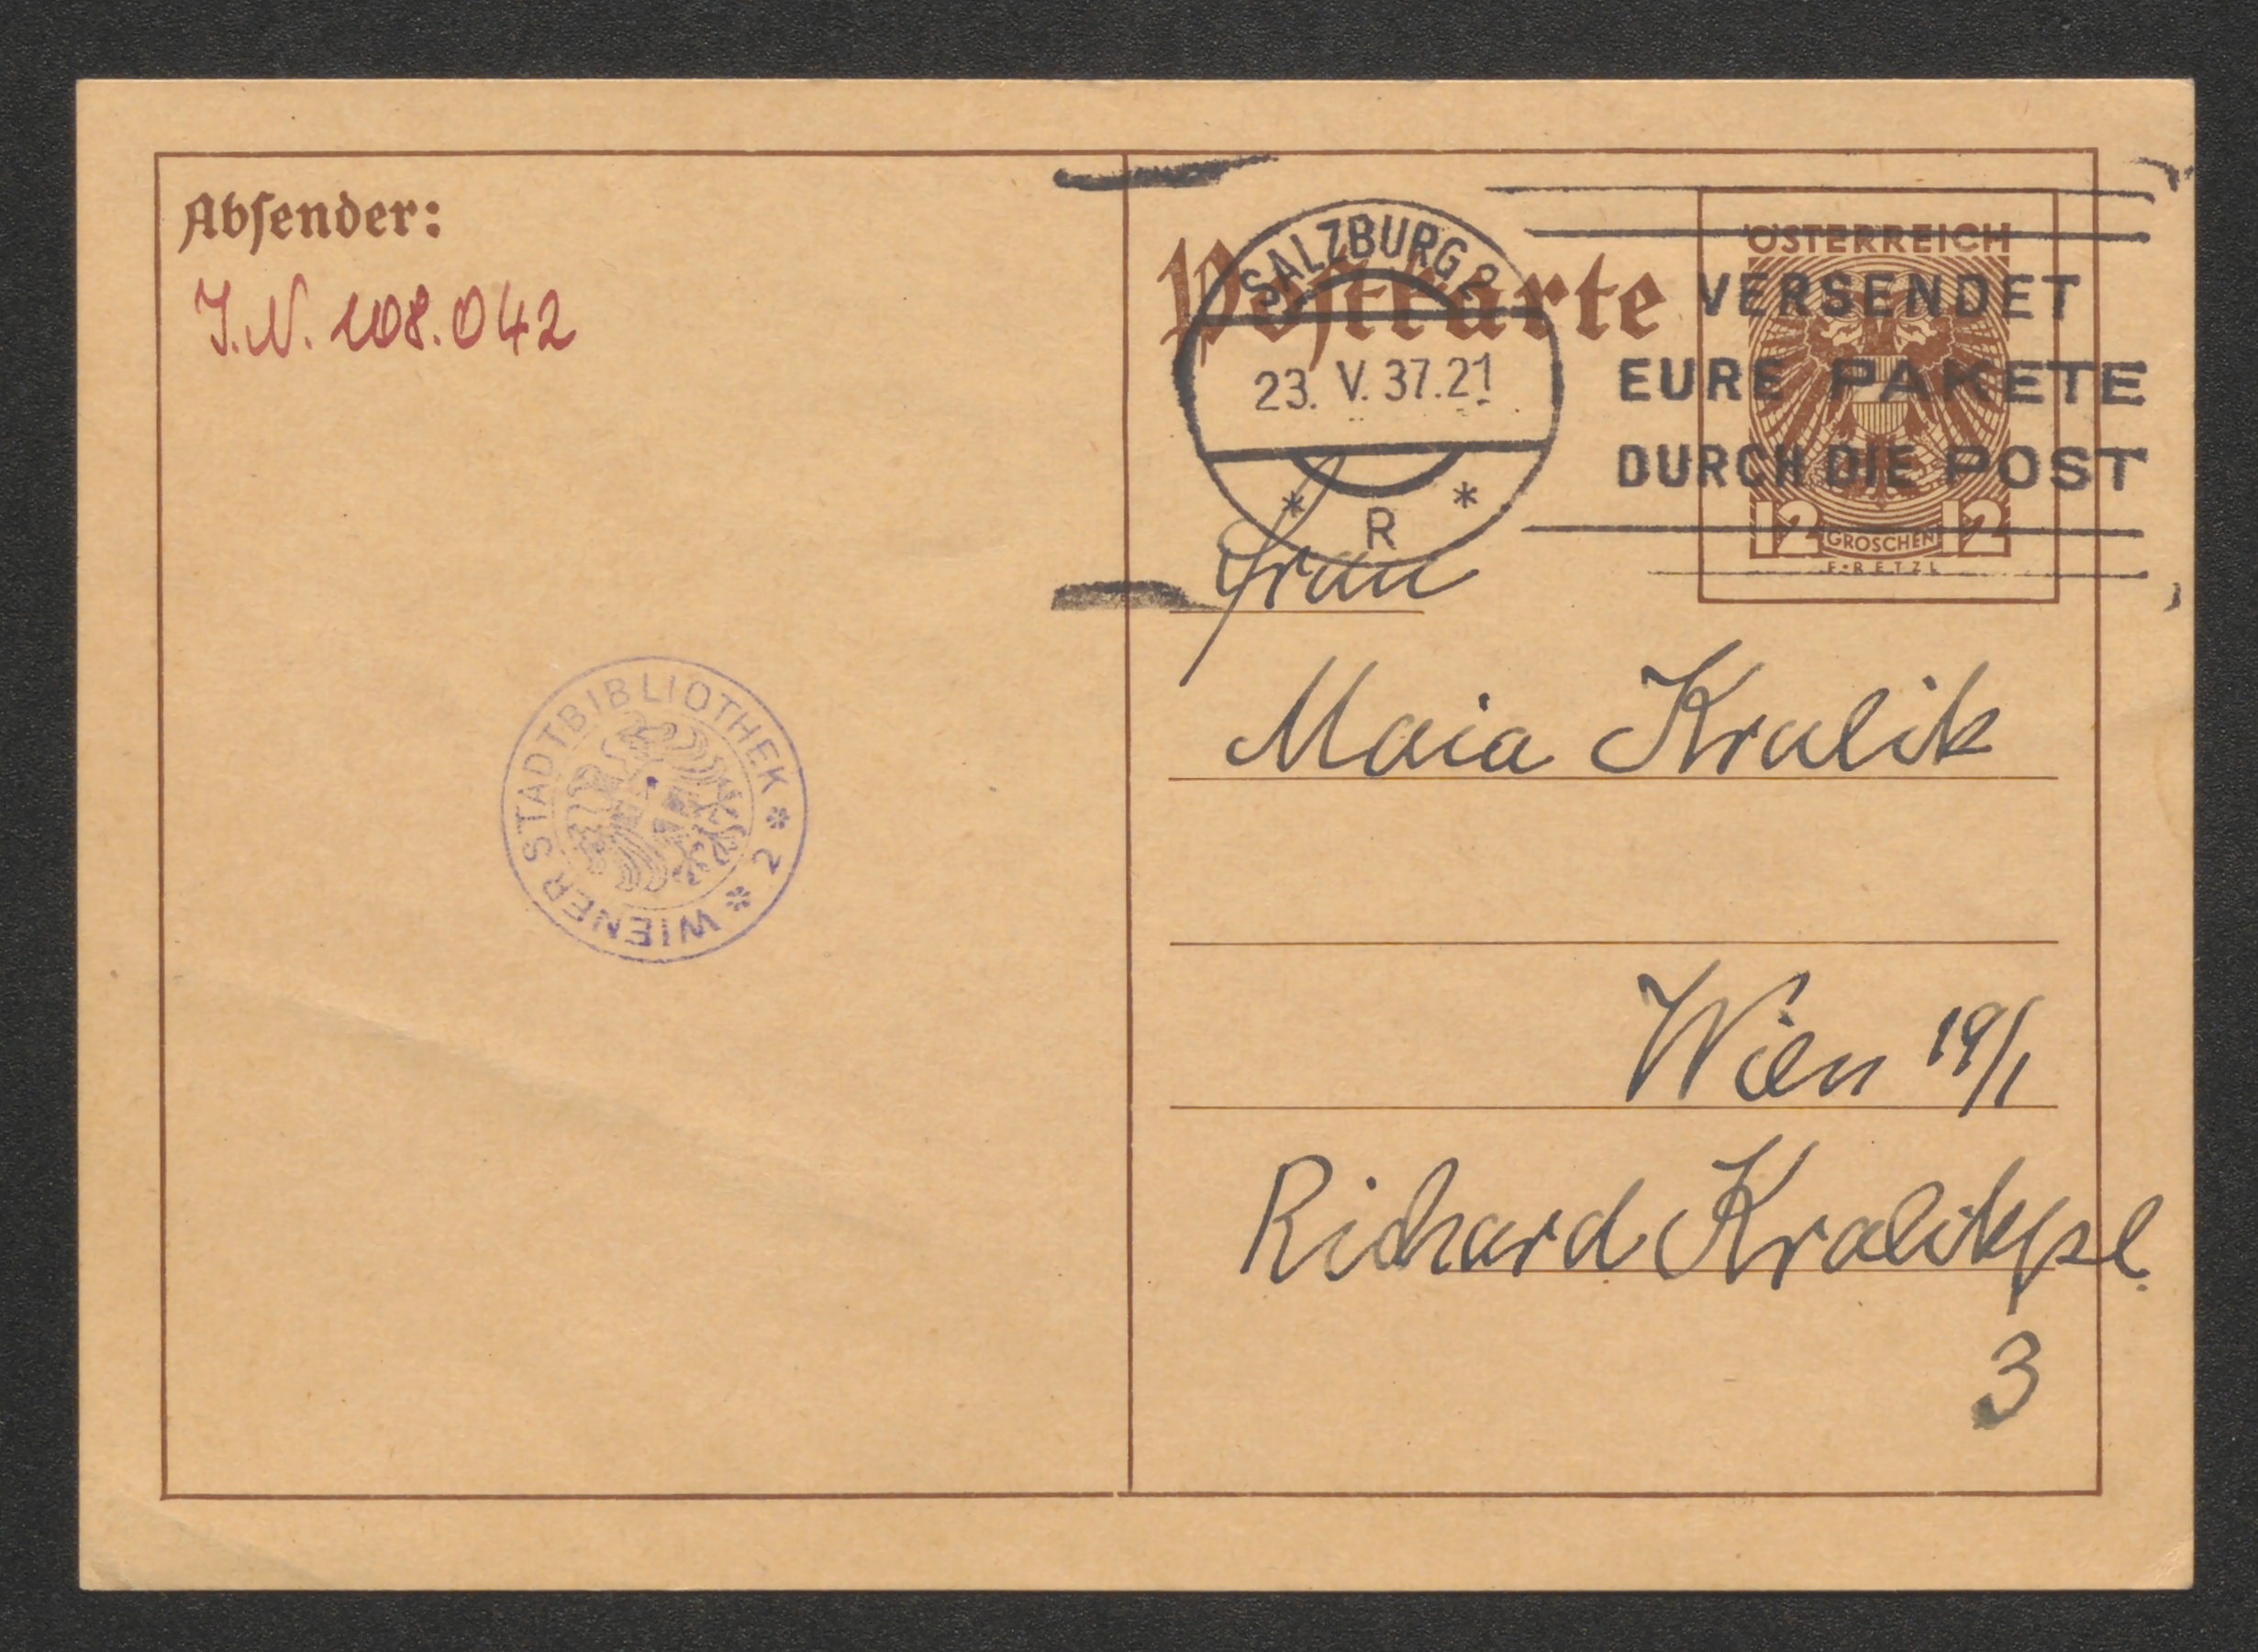 Absender:
I.N. 108.042
WIENER STADTBIBLIOTHEK * 2 *
Postkarte
SALZBURG 2
23. V. 37.21
* R *
VERSENDET
EURE PAKETE
DURCH DIE POST
ÖSTERREICH
12 GROSCHEN 12
F·RETZL
Frau
Maia Kralik
Wien 19/1
Richard Kralikpl.
3